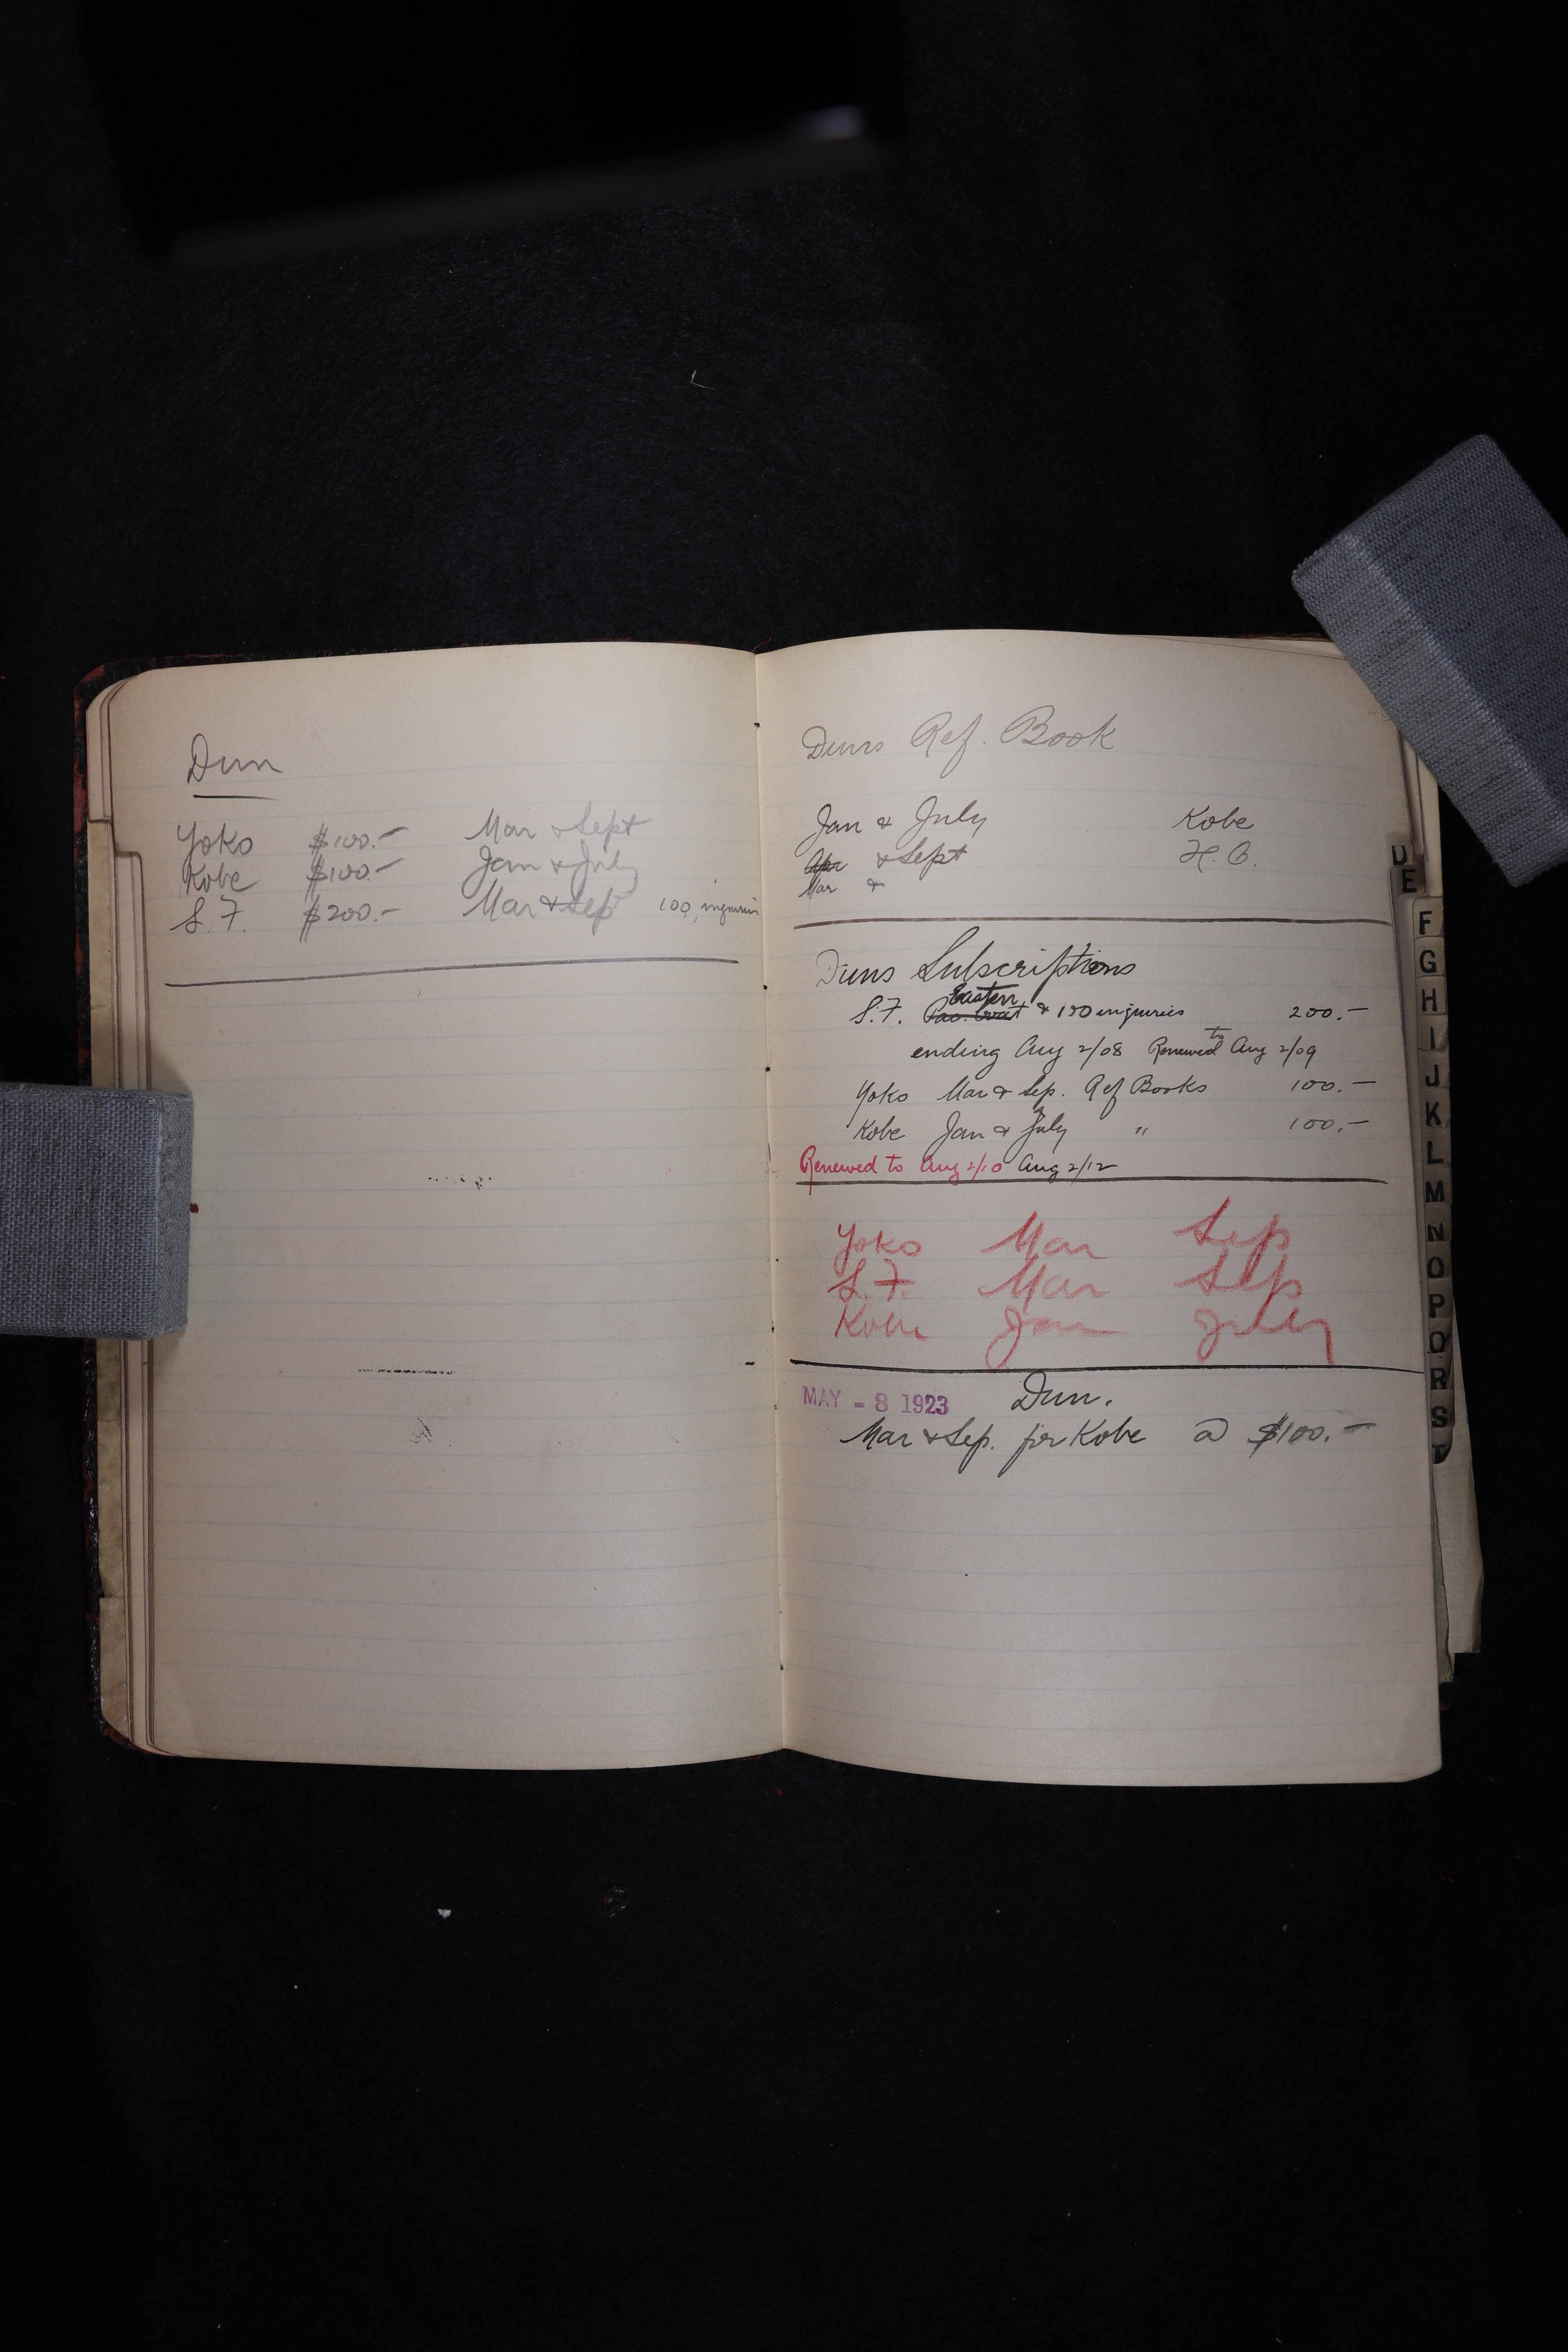 Dun
Yoko $100.- Mar & Sept
Kobe $100.- Jan & July
S.F. $200.- Mar & Sep 100, inquiries
Duns Ref. Book
Jan & July Kobe
Apr & Sept H.O.
Mar &
Duns Subscriptions
Eastern
S.F. Pac. Coast & 100 inquiries 200.-
ending Aug 2/08 Renewed to Aug 2/09
Yoko Mar & Sep. Ref Books 100.-
Kobe Jan & July " 100.-
Renewed to Aug 2/10 Aug 2/12
Yoko Mar Sep
S.F. Mar Sep
Kobe Jan July
MAY - 8 1923 Dun.
Mar & Sep. for Kobe @ $100.-
D
E
F
G
H
I
J
K
L
M
N
O
P
Q
R
S
T